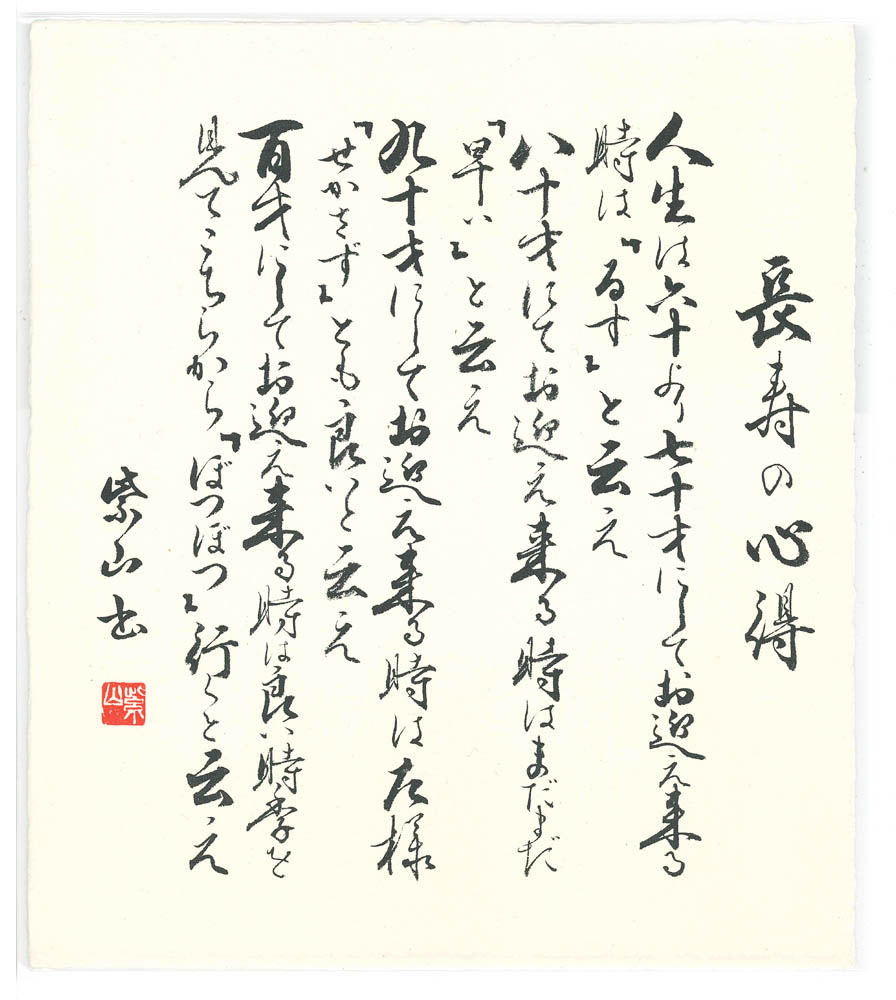 長寿の心得
人生は六十より七十才にしてお迎え来る
時は「るす」と云え
八十才にてお迎え来る時はまだまだ
「早い」と云え
九十才にしてお迎え来る時は左様
「せかさず」とも良いと云え
百才にしてお迎え来る時は良い時季を
見てこちらから「ぼつぼつ」行くと云え
紫山書
紫山